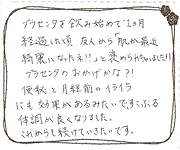 プラセンタを飲み始めて1ヵ月
経過した頃 友人から「肌が最近
綺麗になったネ!!」と褒められちゃいました!!
プラセンタのおかげかな?!
便秘と月経前のイライラ
にも効果があるみたいです。ぷぷ
体調が良くなりました。
これからも続けていきたいです。